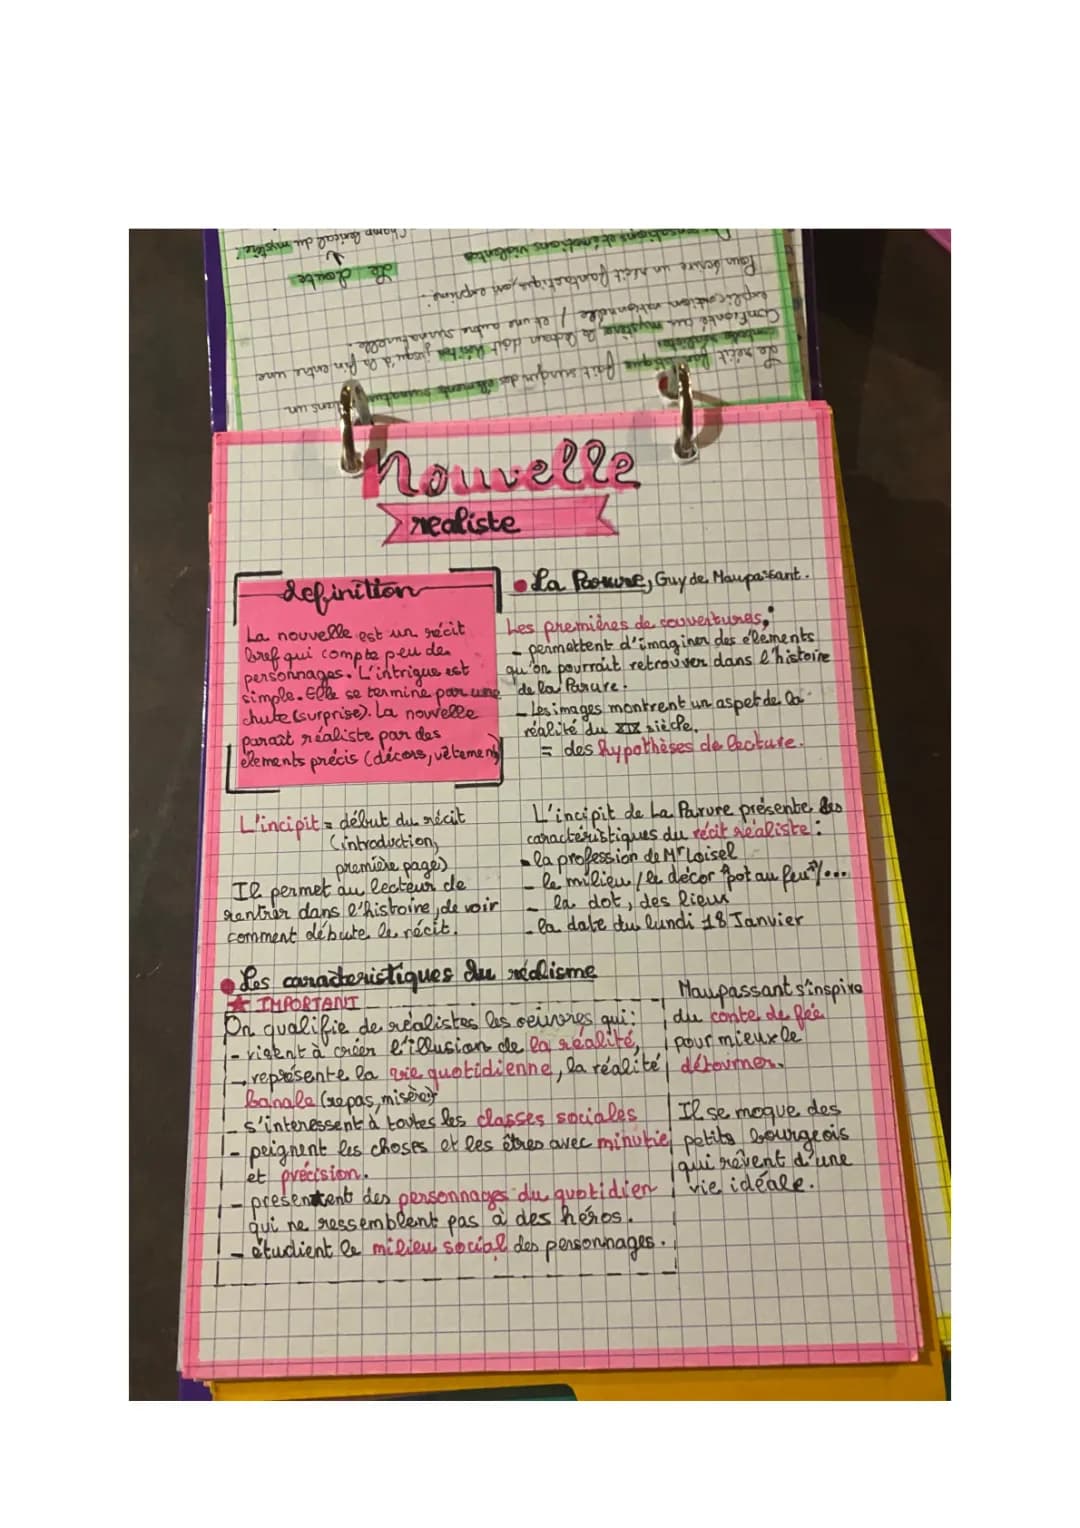 Champ lexical du mystère.
Le doute
Pour écrire un récit fantastique, on exprime :
explication rationnelle / et une autre surnaturelle.
Nouvelle
realiste
definition
La nouvelle est un récit
bref qui compte peu de
personnages. L'intrigue est
simple. Elle se termine par une
chute (surprise). La nouvelle
parait réaliste par des
élements précis (décors, vêtement)
La Parure, Guy de Maupassant.
Les premières de couvertures,
- permettent d'imaginer des élements
qu'on pourrait retrouver dans l'histoire
de la Parure.
- Les images montrent un aspet de la
réalité du XIX siècle.
= des hypothèses de lecture.
L'incipit = début du récit
(introduction,
première page)
Il permet au lecteur de
rentrer dans l'histoire, de voir
comment débute le récit.
L'incipit de La Parure présente les
caractéristiques du récit réaliste :
- la profession de Mr Loisel
- le milieu / le décor "pot au feu"/...
- la dot, des lieux
- la date du lundi 18 Janvier
Les caracteristiques du réalisme
★ IMPORTANT
On qualifie de réalistes les oeuvres qui :
- visent à créer l'illusion de la réalité,
- représente la vie quotidienne, la réalité
banale (repas, misère)
- s'interessent à toutes les classes sociales
- peignent les choses et les êtres avec minutie
et précision.
- presentent des personnages du quotidien
qui ne ressemblent pas à des héros.
- étudient le milieu social des personnages.
Maupassant s'inspire
du conte de fée
pour mieux le
détourner.
Il se moque des
petits bourgeois
qui rêvent d'une
vie idéale.